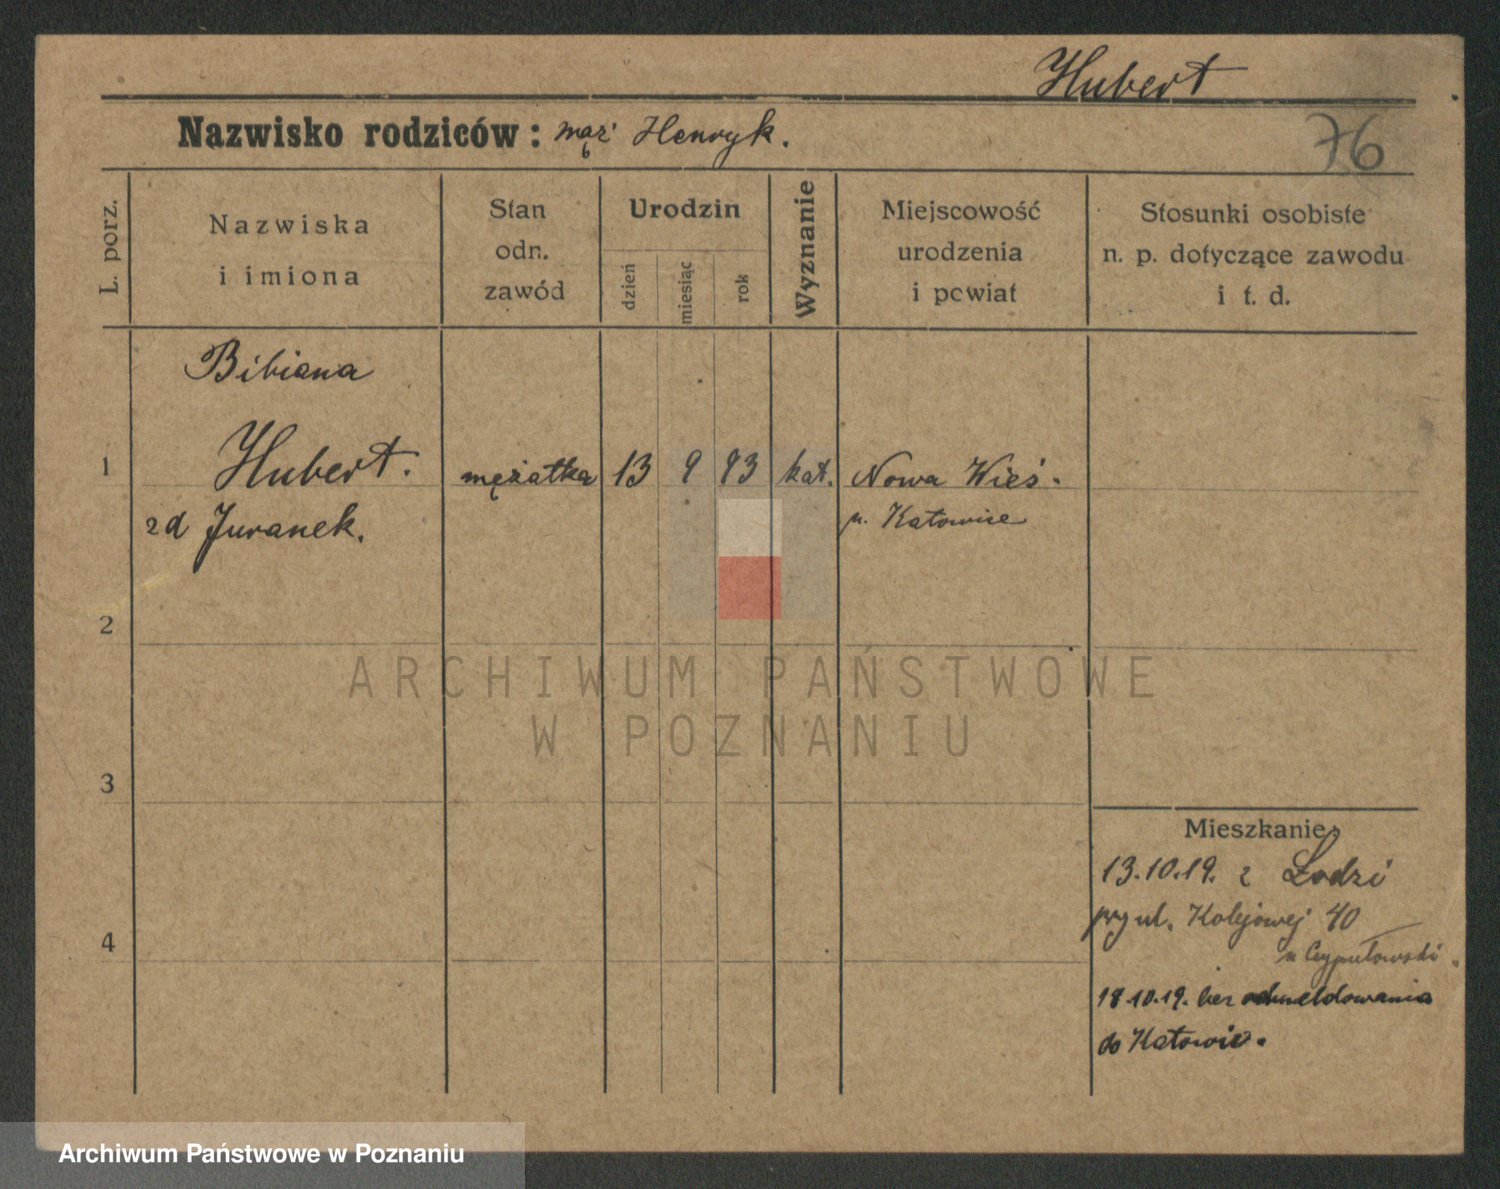 Hubert
Nazwisko rodziców: mąż Henryk.
76
L. porz.
Nazwiska
i imiona
Stan
odn.
zawód
Urodzin
dzień
miesiąc
rok
Wyznanie
Miejscowość
urodzenia
i powiat
Stosunki osobiste
n. p. dotyczące zawodu
i t. d.
Bibiana
1 Hubert. mężatka 13 9 93 kat. Nowa Wieś.
zd Juranek. p. Katowice
2
ARCHIWUM PAŃSTWOWE
W POZNANIU
3
Mieszkanie
13.10.19. z Łodzi
przy ul. Kolejowej 40
4
18.10.19. bez odmeldowania
do Katowic.
Archiwum Państwowe w Poznaniu